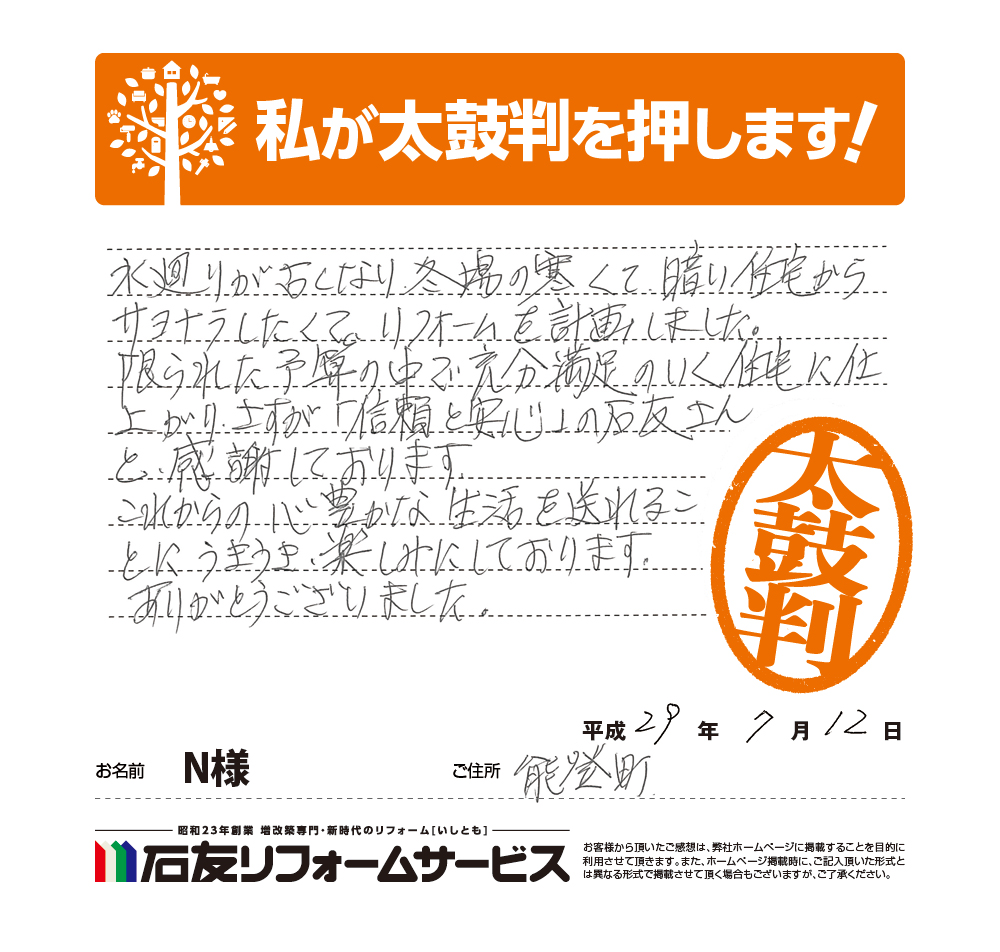 私が太鼓判を押します!
水廻りが古くなり冬場の寒くて暗い住宅から
サヨナラしたくて、リフォームを計画しました。
限られた予算の中で充分満足のいく住宅に仕
上がりさすが「信頼と安心」の石友さん
と、感謝しております。
これからの心豊かな生活を送れるこ
とにうきうき、楽しみにしております。
ありがとうございました。
太鼓判
平成 29 年 7 月 12 日
お名前 N様 ご住所 能登町
昭和23年創業 増改築専門・新時代のリフォーム[いしとも]
石友リフォームサービス
お客様から頂いたご感想は、弊社ホームページに掲載することを目的に
利用させて頂きます。また、ホームページ掲載時に、ご記入頂いた形式と
は異なる形式で掲載させて頂く場合もございますが、ご了承ください。